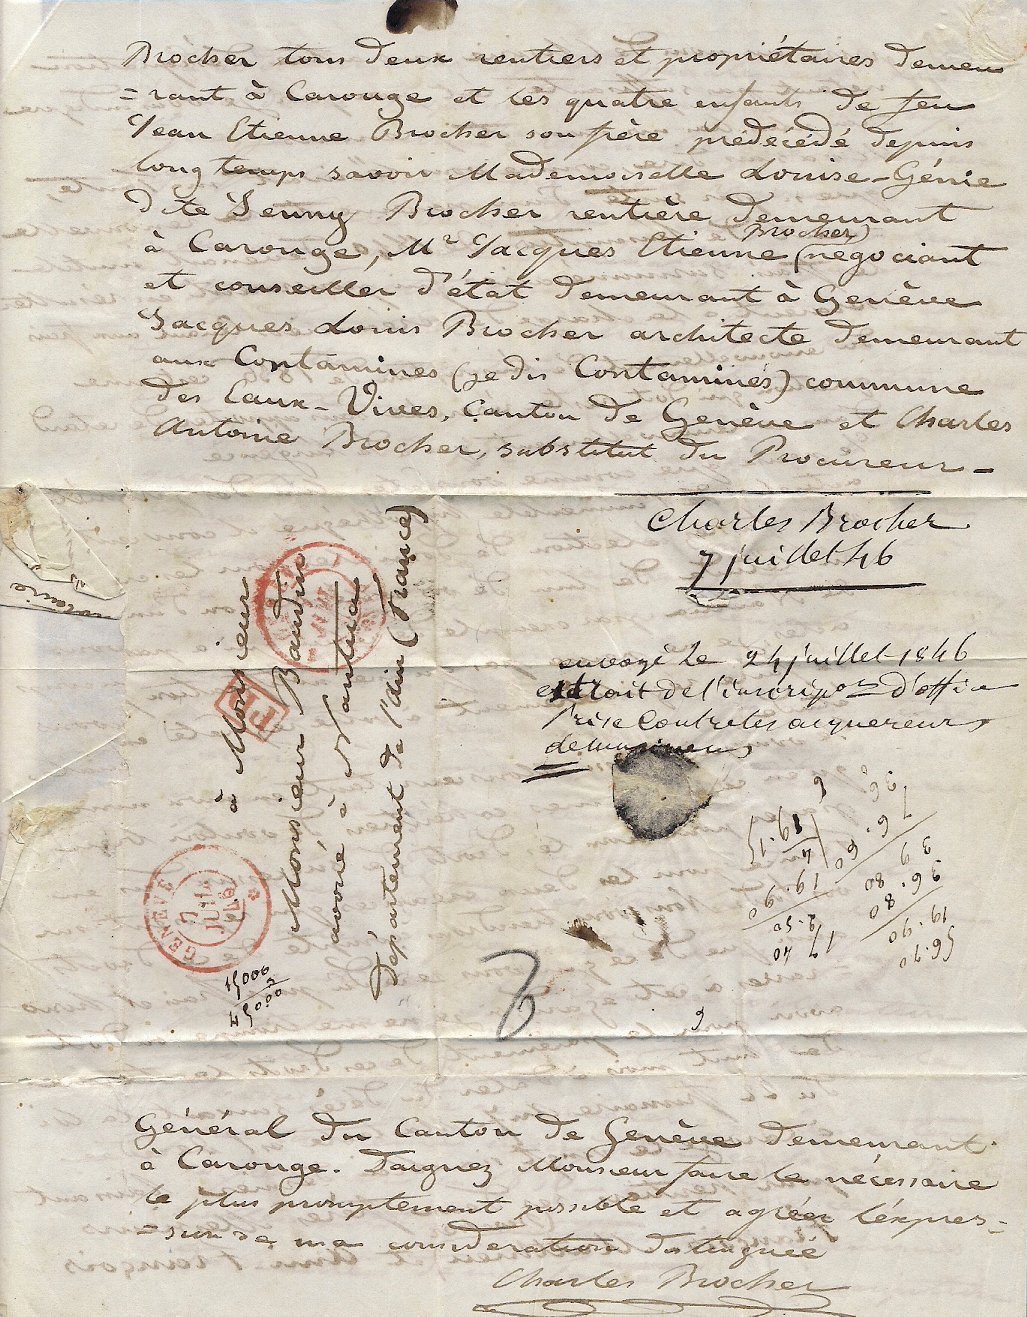 Brocher tous deux rentiers et propriétaires demeu
=rant à Carouge et les quatre enfants de feu
Jean Etienne Brocher son frère prédécédé depuis
long temps savoir Mademoiselle Louise-Génie
dite Jenny Brocher rentière demeurant
à Carouge, Mr Jacques Etienne (negociant
Brocher)
et conseiller d'état demeurant à Genève
Jacques Louis Brocher architecte demeurant
aux Contamines (je dis Contamines) commune
des Eaux-Vives, Canton de Genève et Charles
Antoine Brocher, substitut du Procureur-
Charles Brocher
7 juillet 46
envoyé le 24 juillet 1846
extrait de l'inscripon d'office
prise contre les acquereurs
à Monsieur
Monsieur Baudin
avoué à Nantua
Département de l'Ain (France)
PD
GENÈVE
7
JUIL
15000
3
45000
6
19.15
4
19.90
2.50
17 40
36.
76.60
39 80
36.80
19.90
56.70
Général du Canton de Genève demeurant
à Carouge. Daignez Monsieur faire le nécessaire
le plus promptement possible et agréer l'expres-
=sion de ma consideration distinguée
Charles Brocher